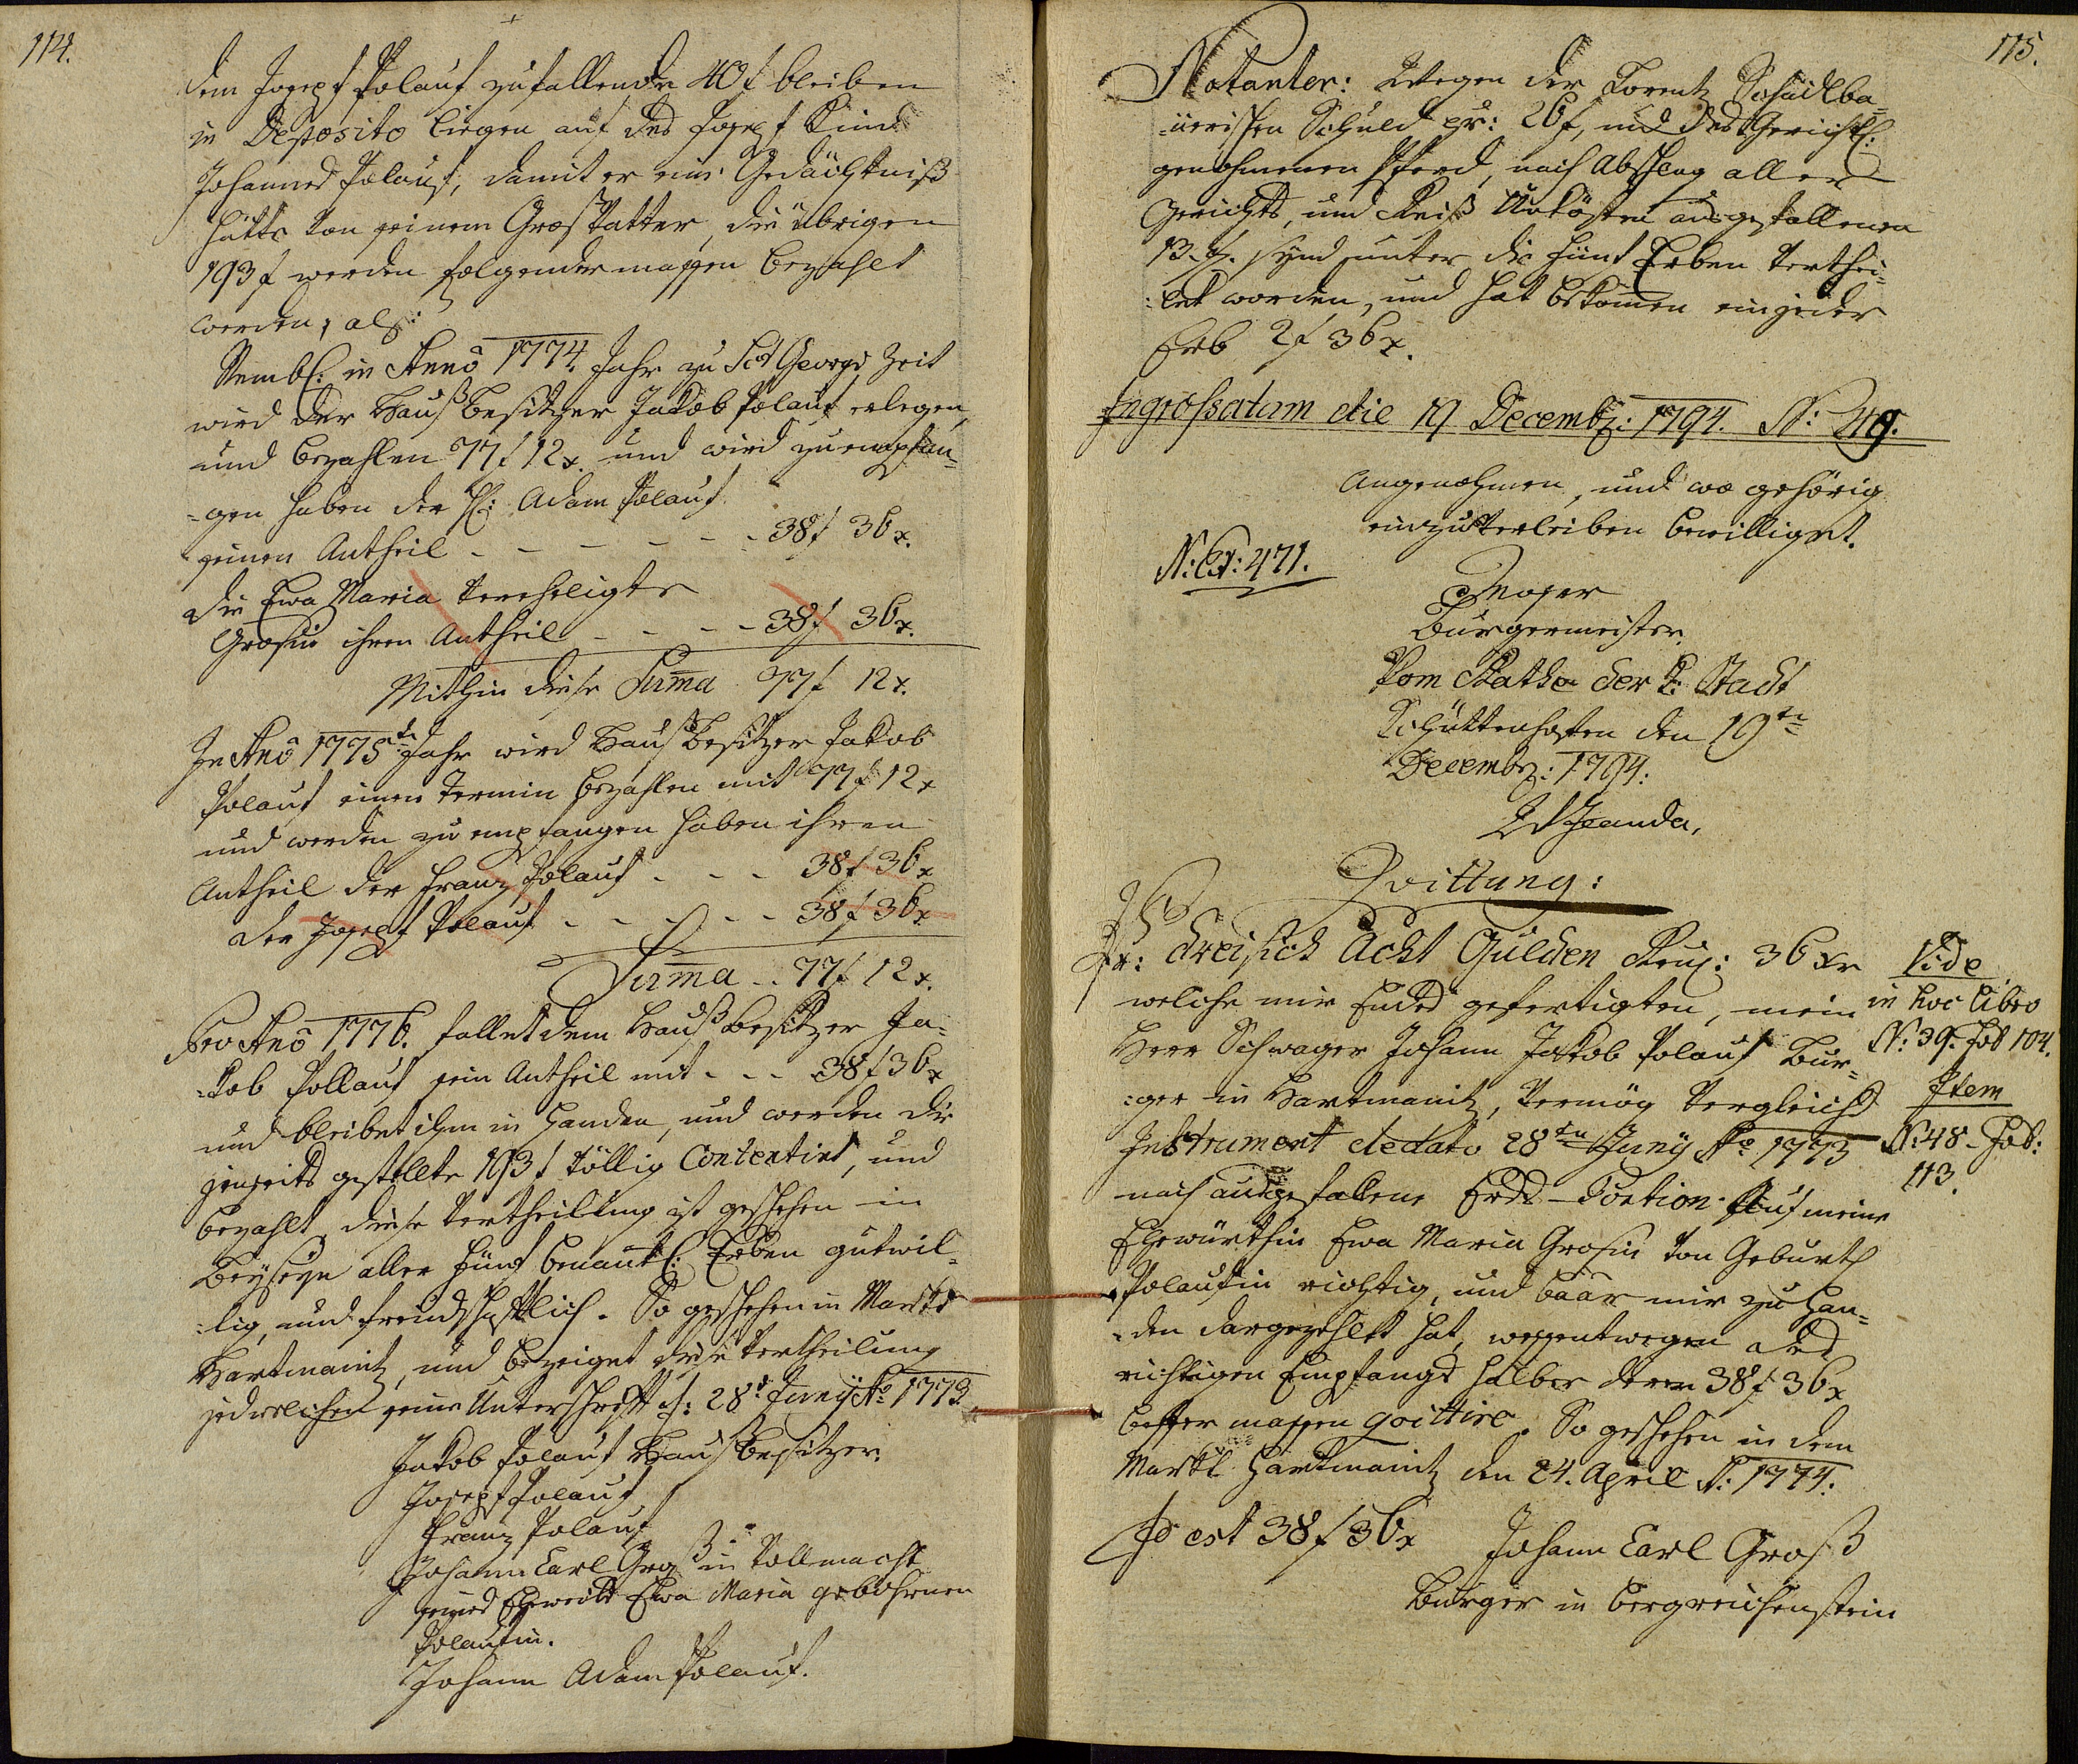 114.
dem Joseph Polauf zufallende 40 f bleiben
in Deposito liegen auf des Joseph Kind
Johannes Polauf, damit er eine Gedächtniß
hätte von seinem Großvatter, die übrigen
193 f werden folgender massen bezahlt
werden, als:
Nembl: in Anno 1774. Jahr zu Sct Georgi Zeit
wird der Haußbesitzer Jakob Polauf erlegen,
und bezahlen 77 f 12 x. und wird zu empfan-
-gen haben der H: Adam Polauf
seinen Antheil - - - - - - 38 f 36 x.
die Ewa Maria verehligte
Grosin ihren Antheil - - - - 38 f 36 x.
Mithin diese Suma 77 f 12 x.
In Ano 1775te Jahr wird Haußbesitzer Jakob
Polauf einen Termin bezahlen mit 77 f 12 x
und werden zu empfangen haben ihren
Antheil der Franz Polauf - - - 38 f 36 x
der Joseph Polauf - - - - - 38 f 36 x
Suma - - 77 f 12 x.
Pro Ano 1776. fallet dem Haußbesitzer Ja-
-kob Pollauf sein Antheil mit - - - 38 f 36 x
und bleibet ihm in Handen, und werden die
jenseits gestellte 193 f völlig Contentirt, und
bezahlt, diese Vertheilung ist geschehen in
Beyseyn aller fünf benantl: Erben gutwil-
-lig, und freundschaftlich. So geschehen in Markt
Hartmanitz, und bezeiget diese Vertheilung
jedwelchen seine Unterschrift d: 28t Juny Ao 1773
Jakob Polauf Haußbesitzer.
Joseph Polauf
Franz Polauf
Johann Carl Groß in Vollmacht
seines Eheweibs Ewa Maria gebohrnen
Polaufin.
Johann Adam Polauf.
115.
Notanter: Wegen der Lorentz Schädlba-
-uerischen Schuld pr: 26 f, und des Gerichtl:
genohmenen Pferd, nach Abschlag aller
Gerichts, und Reiß Unkösten ausgefallenen
13. f. seynd unter die fünf Erben verthei-
-let worden, und hat bekomen ein jeder
Erb 2 f 36 x.
Ingrossatum die 19 Decembr: 1794. N: 49.
Angenohmen, und wo gehörig
einzuverleiben bewilliget.
N: Ex: 471.
Moser
Burgermeister.
Vom Rathe der k: Stadt
Schüttenhofen den 19ten
Decembr: 1794:
Quittung:
Pr: dreisich Acht Gulden Reu: 36 Xr
welche mir Endes gefertigten, mein
Herr Schwager Johann Jakob Polauf Bur-
-ger in Hartmanitz, vermög Vergleichs
Instrument dedato 28ten Juny Ao 1773
nach ausgefallene Erbs-Portion auf meine
Ehewürthin Ewa Maria Grosin von Geburth
Polaufin richtig, und baar mir zu Han-
-den dargezehlt hat, wessentwegen des
richtigen Empfangs halber deren 38 f 36 x
bester massen quittire. So geschehen in dem
Markt Hartmanitz den 24. April A: 1774.
Id est 38 f 36 x Johann Carl Groß
Burger in Bergreichenstein
Vide
in hoc libro
N: 39. Fol 104.
Item
N: 48 - Fol:
113.